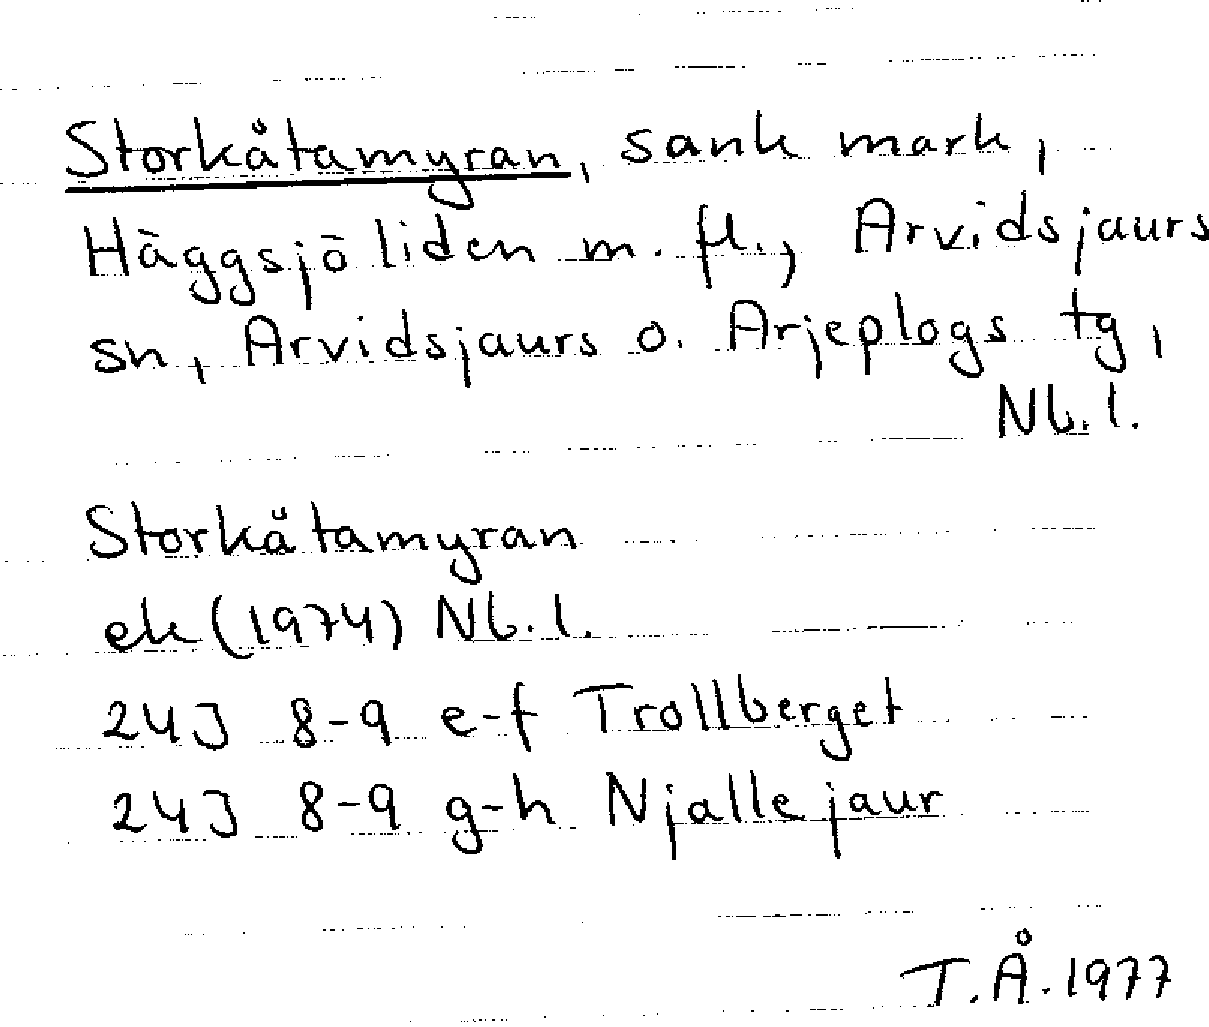 Storkåtamyran, sank mark,
Häggsjöliden m. fl., Arvidsjaurs
sn, Arvidsjaurs o. Arjeplogs tg,
Nb. l.
Storkåtamyran
ek (1974) Nb. l.
24J 8-9 e-f Trollberget
24J 8-9 g-h Njallejaur
T.Å. 1977